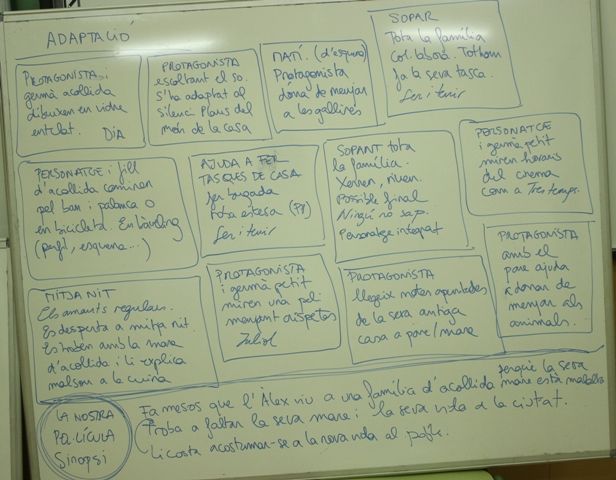 ADAPTACIÓ
PROTAGONISTA i
germà acollida
dibuixen en vidre
entelat. DIA
PROTAGONISTA
escoltant el so.
S'ha adaptat al
silenci. Plans del
món de la casa
MATÍ. (d'esquena)
Protagonista
dona de menjar
a les gallines
SOPAR
Tota la família
Col·labora. Tothom
fa la seva tasca.
Ser i tenir
PERSONATGE i fill
d'acollida caminen
pel barri i palanca o
en bicicleta. En tràveling
(perfil, esquena...)
AJUDA A FER
TASQUES DE CASA
fer bugada
roba estesa (PP)
Ser i tenir
SOPANT tota
la família.
Xerren, riuen.
Possible final
Ningú no sap.
Personatge integrat
PERSONATGE
i germà petit
miren horaris
del cinema
com a Tres temps.
MITJA NIT
Els amants regulars.
Es desperta a mitja nit.
Es troben amb la mare
d'acollida i li explica
malson a la cuina
PROTAGONISTA
i germà petit
miren una peli
menjant crispetes
Juliol
PROTAGONISTA
llegeix notes apuntades
de la seva antiga
casa a pare/mare
PROTAGONISTA
amb el
pare ajuda
a donar de
menjar als
animals.
LA NOSTRA
PEL·LÍCULA
Sinopsi
Fa mesos que l'Àlex viu a una família d'acollida perquè la seva
mare està malalta
Troba a faltar la seva mare i la seva vida a la ciutat.
Li costa acostumar-se a la nova vida al poble.